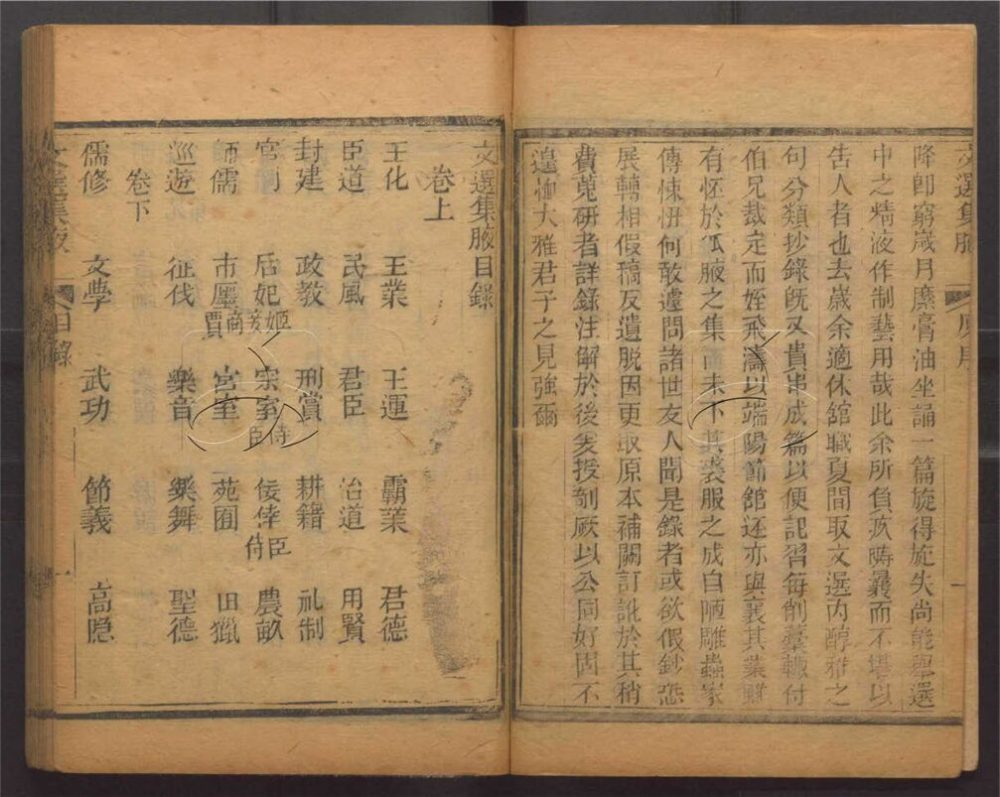 文選集腋
原序
一
降卽窮歲月縻膏油坐誦一篇旋得旋失尚能選
中之精液作制藝用哉此余所負疚疇曩而不堪以
告人者也去歲余適休舘職夏間取文選內醇雅之
句分類抄錄旣又貴串成篇以便記習每削藁輒付
伯兄裁定而姪飛濤以端陽節舘还亦與襄其業雖
有怀於狐腋之集而未卜其裘服之成自陋雕蟲家
傳悚忸何敢遽問諸世友人聞是錄者或欲假鈔恐
展轉相假稿反遺脫因更取原本補闕訂訛於其稍
費蒐研者詳錄注解於後爰授剞厥以公同好固不
遑恤大雅君子之見強爾
文選集腋目錄
卷上
王化 王業 王運 霸業 君德
臣道 民風 君臣 治道 用賢
封建 政教 刑賞 耕籍 礼制
宮闈 后妃姬妾 宗室侍臣 佞倖臣侍 農畝
師儒 市廛商賈 宮室 苑囿 田獵
巡遊 征伐 樂音 樂舞 聖德
卷下
儒修 文學 武功 節義 高隐
文選集腋
目錄
一